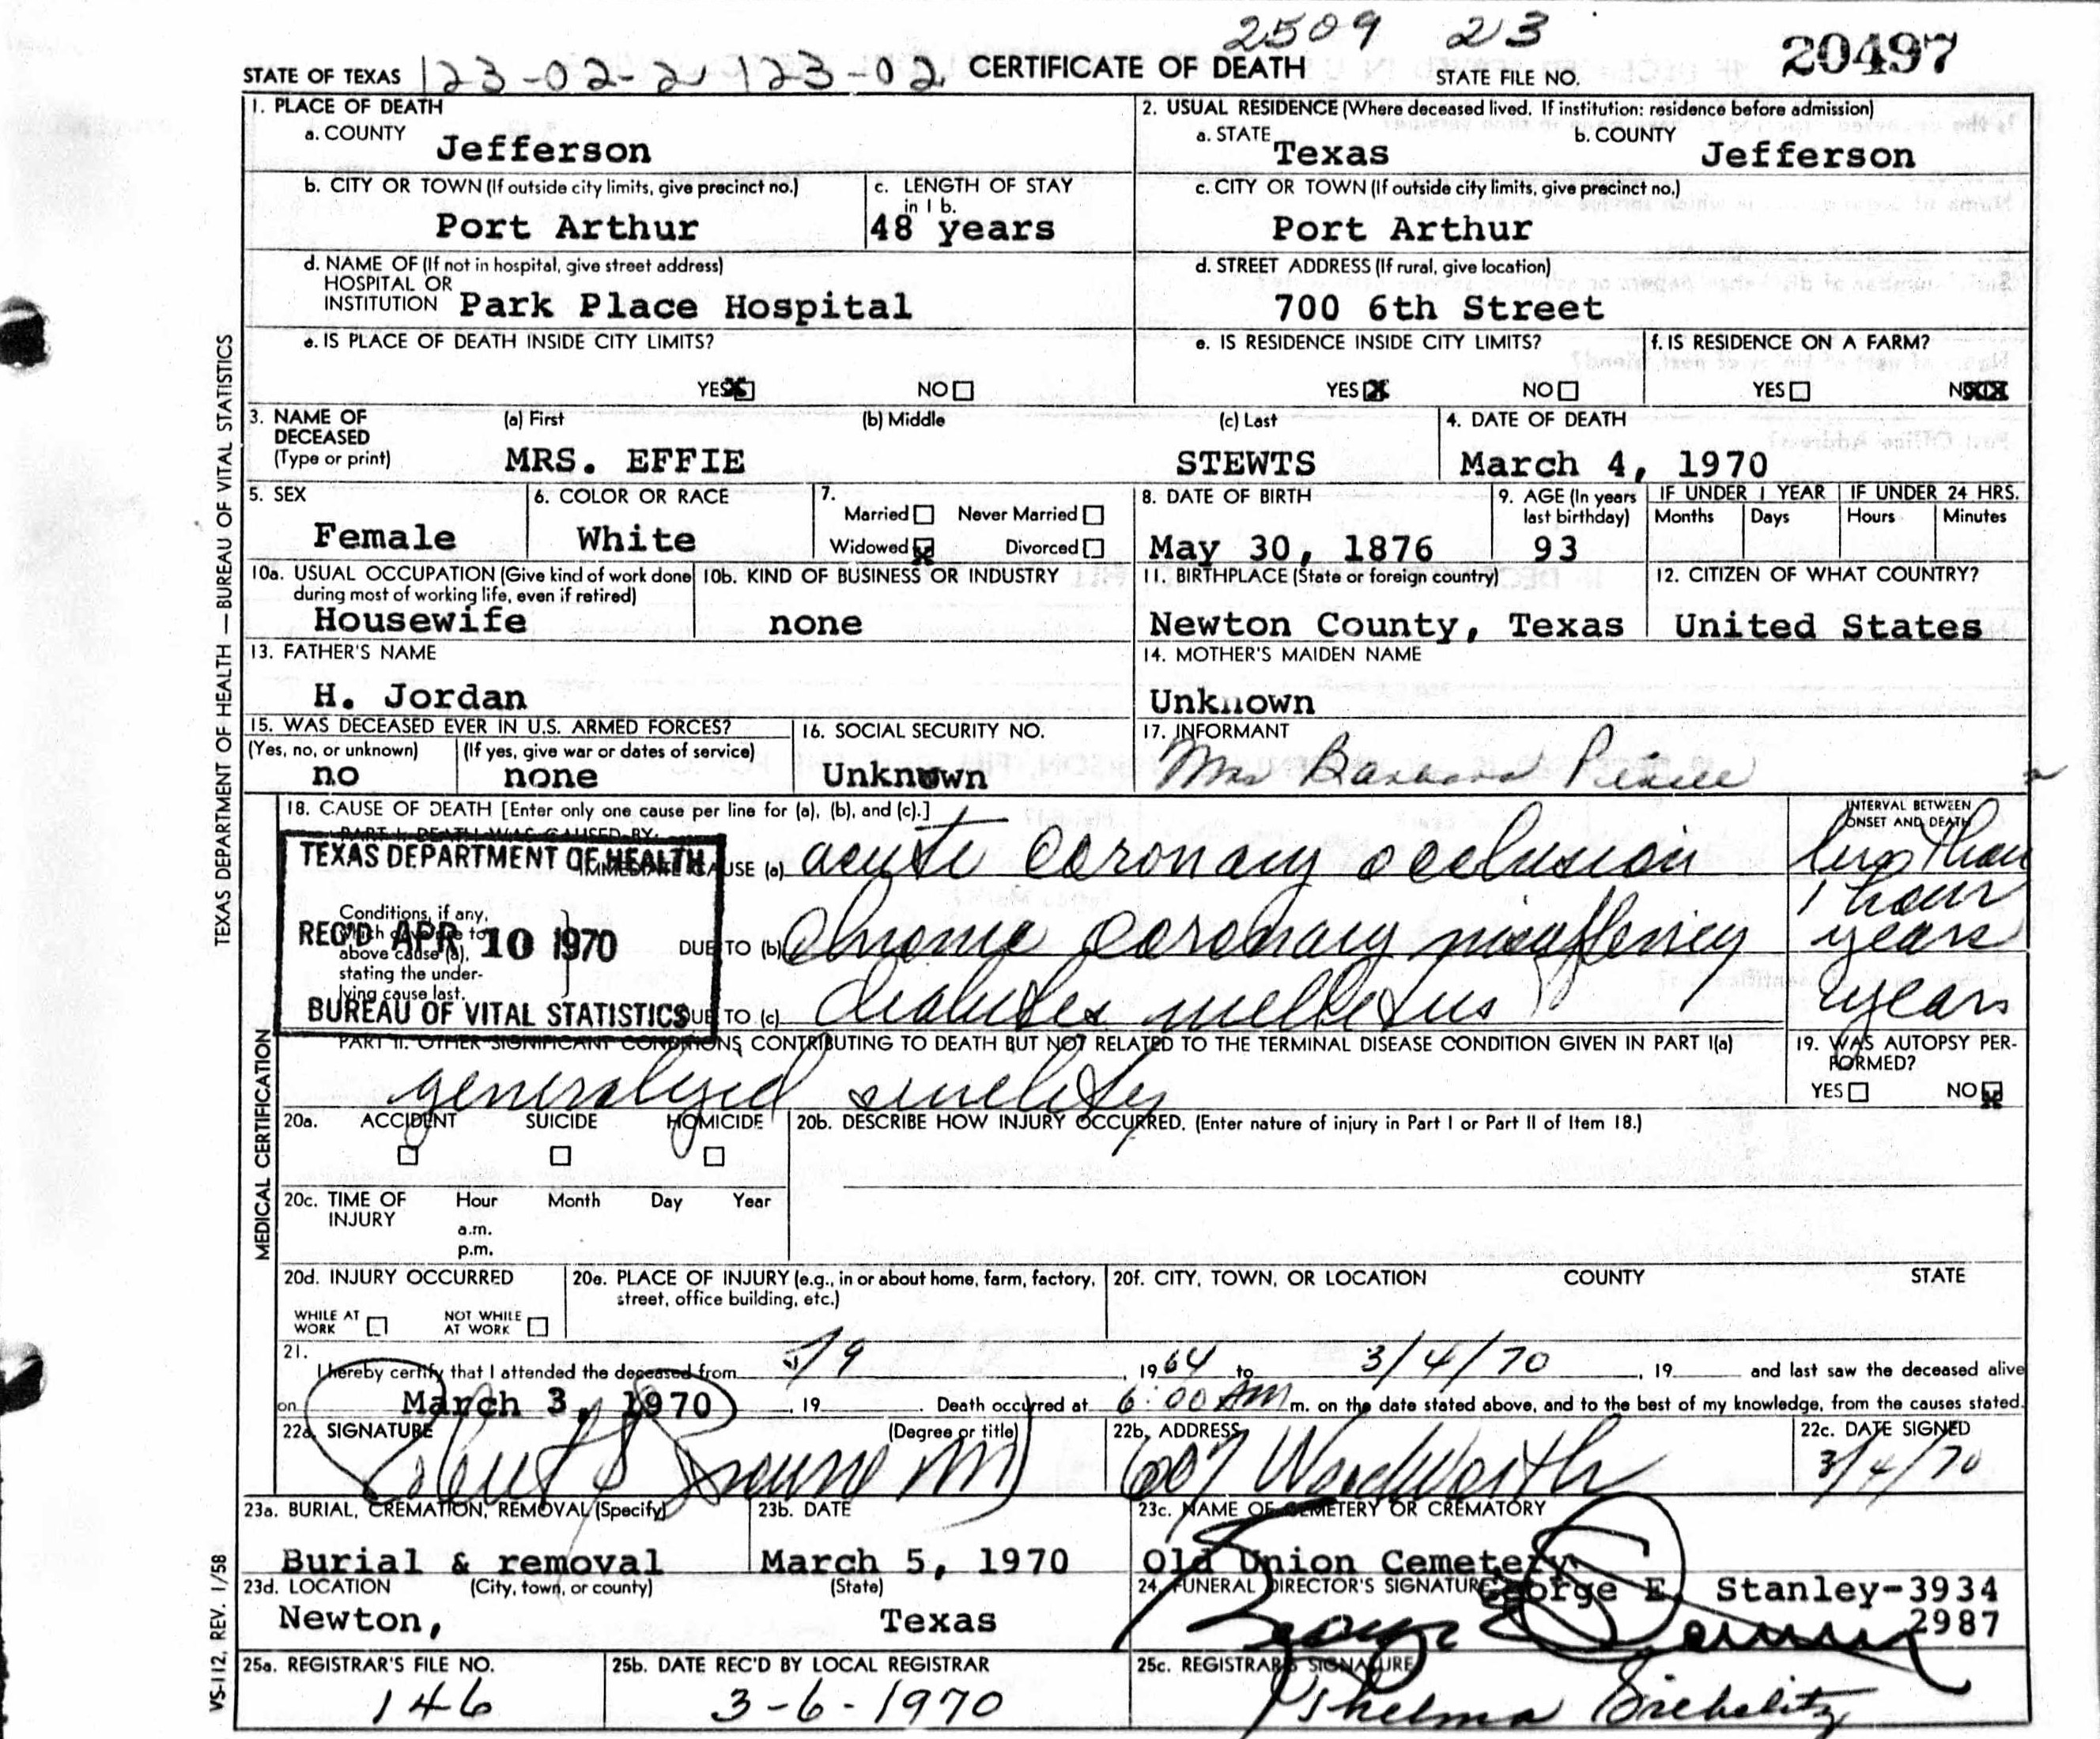 2509 23
STATE OF TEXAS 123-02-2 123-02 CERTIFICATE OF DEATH STATE FILE NO. 20497
TEXAS DEPARTMENT OF HEALTH — BUREAU OF VITAL STATISTICS
1. PLACE OF DEATH
a. COUNTY Jefferson
b. CITY OR TOWN (If outside city limits, give precinct no.) Port Arthur
c. LENGTH OF STAY in 1 b. 48 years
d. NAME OF (If not in hospital, give street address)
HOSPITAL OR
INSTITUTION Park Place Hospital
e. IS PLACE OF DEATH INSIDE CITY LIMITS?
YES NO
2. USUAL RESIDENCE (Where deceased lived. If institution: residence before admission)
a. STATE Texas b. COUNTY Jefferson
c. CITY OR TOWN (If outside city limits, give precinct no.)
Port Arthur
d. STREET ADDRESS (If rural, give location)
700 6th Street
e. IS RESIDENCE INSIDE CITY LIMITS?
YES NO
f. IS RESIDENCE ON A FARM?
YES NO
3. NAME OF DECEASED (Type or print) (a) First (b) Middle (c) Last
MRS. EFFIE STEWTS
4. DATE OF DEATH
March 4, 1970
5. SEX
Female
6. COLOR OR RACE
White
7.
Married Never Married
Widowed Divorced
8. DATE OF BIRTH
May 30, 1876
9. AGE (In years last birthday)
93
IF UNDER 1 YEAR IF UNDER 24 HRS.
Months Days Hours Minutes
10a. USUAL OCCUPATION (Give kind of work done during most of working life, even if retired)
Housewife
10b. KIND OF BUSINESS OR INDUSTRY
none
11. BIRTHPLACE (State or foreign country)
Newton County, Texas
12. CITIZEN OF WHAT COUNTRY?
United States
13. FATHER'S NAME
H. Jordan
14. MOTHER'S MAIDEN NAME
Unknown
15. WAS DECEASED EVER IN U.S. ARMED FORCES?
(Yes, no, or unknown) (If yes, give war or dates of service)
no none
16. SOCIAL SECURITY NO.
Unknown
17. INFORMANT
Mrs
MEDICAL CERTIFICATION
18. CAUSE OF DEATH [Enter only one cause per line for (a), (b), and (c).]
PART I. DEATH WAS CAUSED BY:
IMMEDIATE CAUSE (a) acute coronary occlusion
INTERVAL BETWEEN ONSET AND DEATH
less than 1 hour
Conditions, if any, which gave rise to above cause (a), stating the underlying cause last.
DUE TO (b) chronic coronary insufficiency years
DUE TO (c) diabetes mellitus years
TEXAS DEPARTMENT OF HEALTH
REC'D APR 10 1970
BUREAU OF VITAL STATISTICS
PART II. OTHER SIGNIFICANT CONDITIONS CONTRIBUTING TO DEATH BUT NOT RELATED TO THE TERMINAL DISEASE CONDITION GIVEN IN PART I(a)
generalized senility
19. WAS AUTOPSY PERFORMED?
YES NO
20a. ACCIDENT SUICIDE HOMICIDE
20b. DESCRIBE HOW INJURY OCCURRED. (Enter nature of injury in Part I or Part II of Item 18.)
20c. TIME OF INJURY Hour Month Day Year
a.m.
p.m.
20d. INJURY OCCURRED
WHILE AT WORK NOT WHILE AT WORK
20e. PLACE OF INJURY (e.g., in or about home, farm, factory, street, office building, etc.)
20f. CITY, TOWN, OR LOCATION COUNTY STATE
21.
I hereby certify that I attended the deceased from , 1964 to 3/4/70 , 19 and last saw the deceased alive
on March 3, 1970 , 19 . Death occurred at 6:00 AM m. on the date stated above, and to the best of my knowledge, from the causes stated.
22a. SIGNATURE (Degree or title)
22b. ADDRESS
607 Woodworth
22c. DATE SIGNED
3/4/70
23a. BURIAL, CREMATION, REMOVAL (Specify)
Burial & removal
23b. DATE
March 5, 1970
23c. NAME OF CEMETERY OR CREMATORY
Old Union Cemetery
23d. LOCATION (City, town, or county) (State)
Newton, Texas
24. FUNERAL DIRECTOR'S SIGNATURE George E. Stanley-3934
2987
25a. REGISTRAR'S FILE NO.
146
25b. DATE REC'D BY LOCAL REGISTRAR
3-6-1970
25c. REGISTRAR'S SIGNATURE
Thelma
VS-112, REV. 1/58